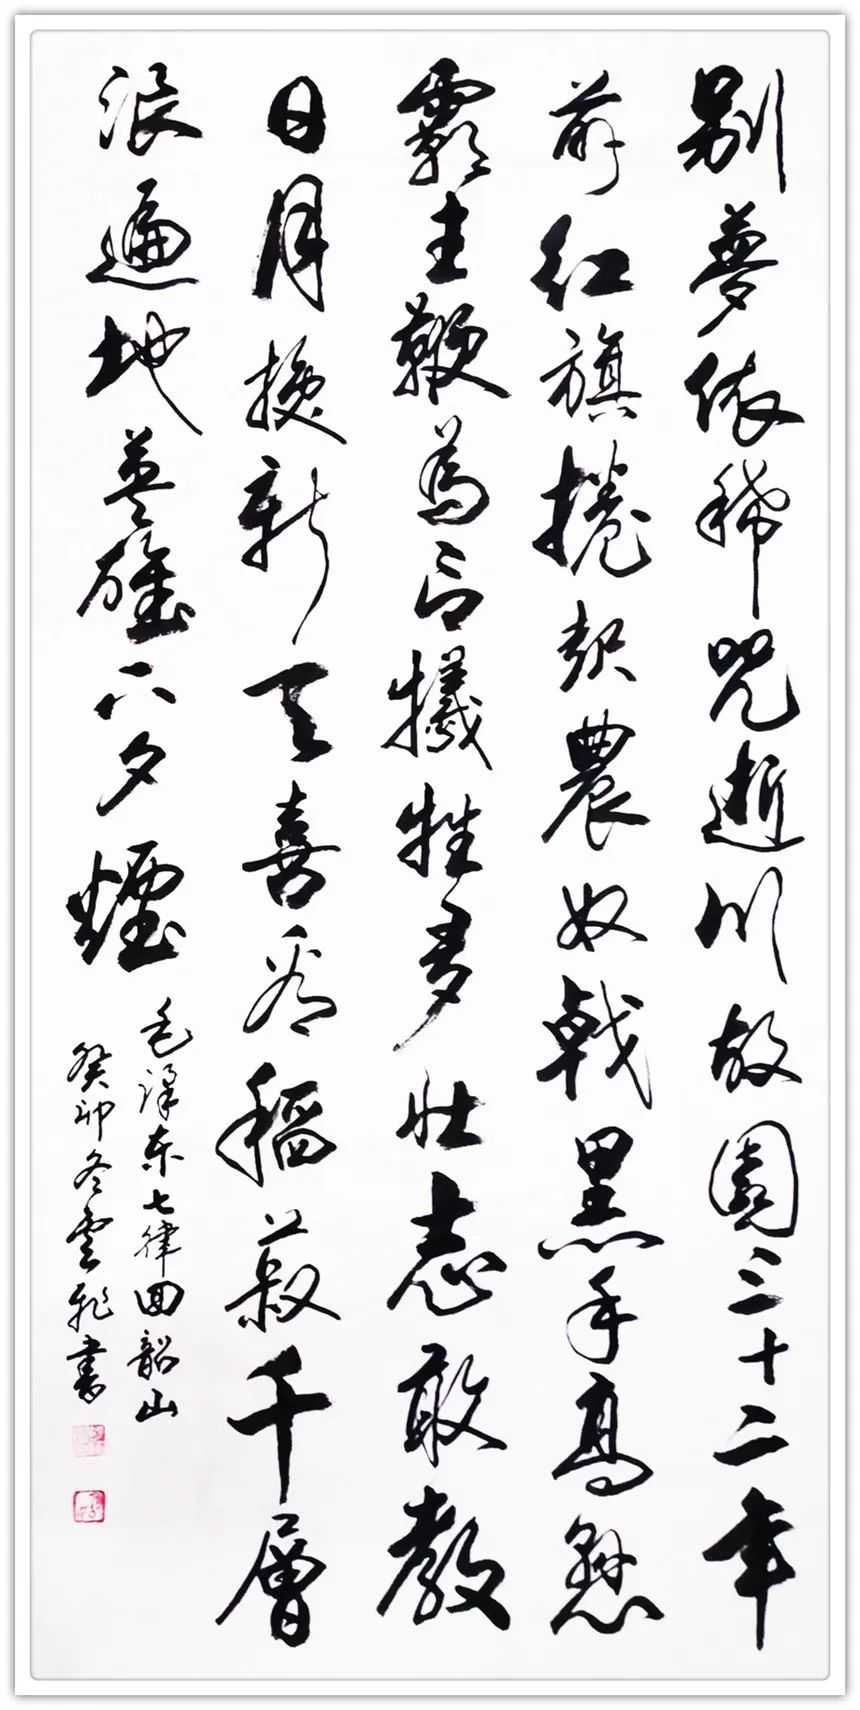 别夢依稀咒逝川故園三十二年
前红旗捲起農奴戟黑手高懸
霸主鞭為有犧牲多壮志敢教
日月换新天喜看稻菽千層
浪遍地英雄下夕煙
毛澤东七律回韶山
癸卯冬雲書